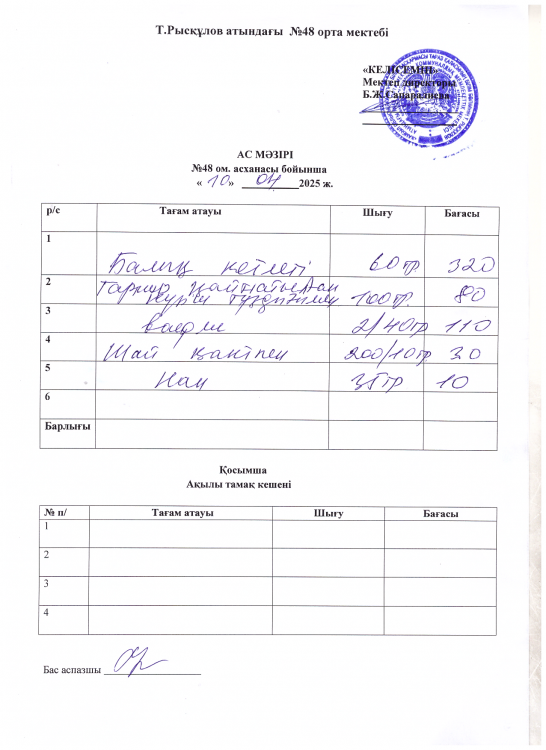 Т.Рысқұлов атындағы №48 орта мектебі
«КЕЛІСЕМІН»
Мектеп директоры
Б.Ж.Сапаралиева
АС МӘЗІРІ
№48 ом. асханасы бойынша
« 10 » 04 2025 ж.
р/с Тағам атауы Шығу Бағасы
1 Балық котлеті 60 гр 320
2 Гарнир қайнатылған күріш тұздығымен 100 гр. 80
3 вафли 2/40гр 110
4 Шай қантпен 200/10гр 30
5 Нан 35гр 10
6
Барлығы
Қосымша
Ақылы тамақ кешені
№ п/ Тағам атауы Шығу Бағасы
1
2
3
4
Бас аспазшы